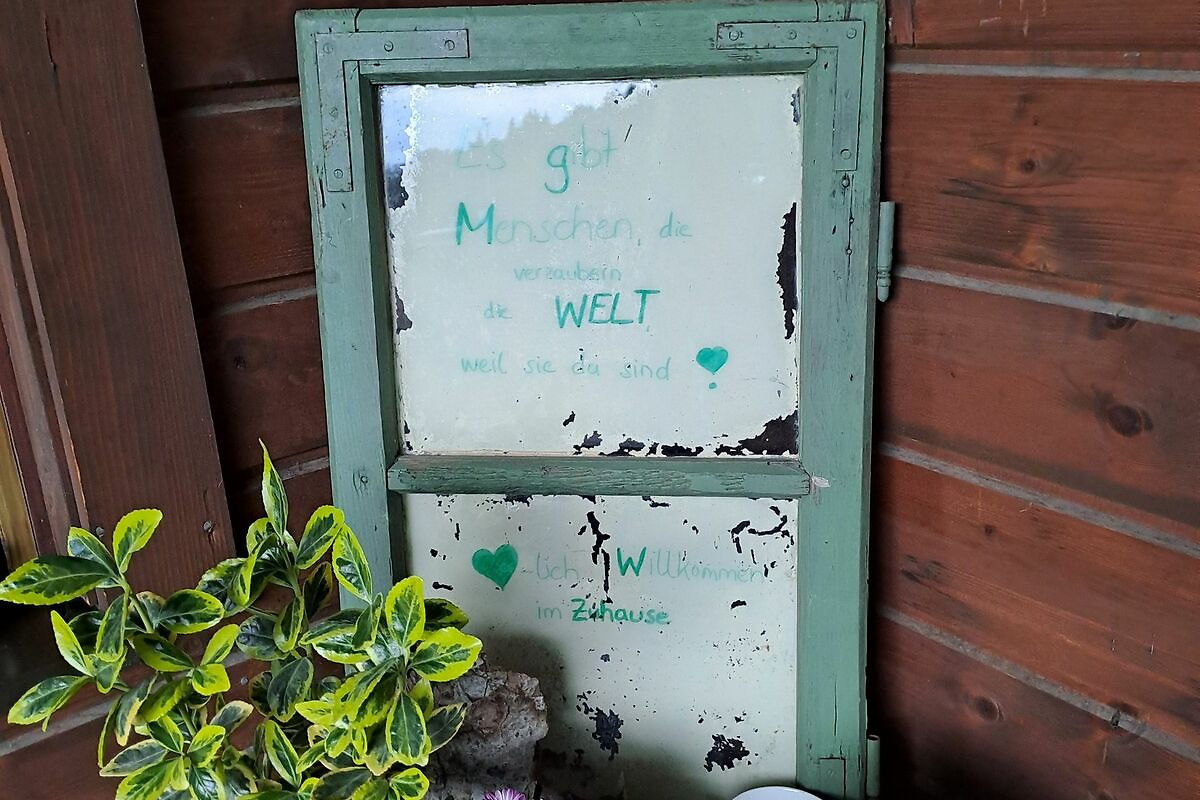 Es gibt
Menschen, die
verzaubern
die WELT
weil sie da sind
-lich Willkommen
im Zuhause